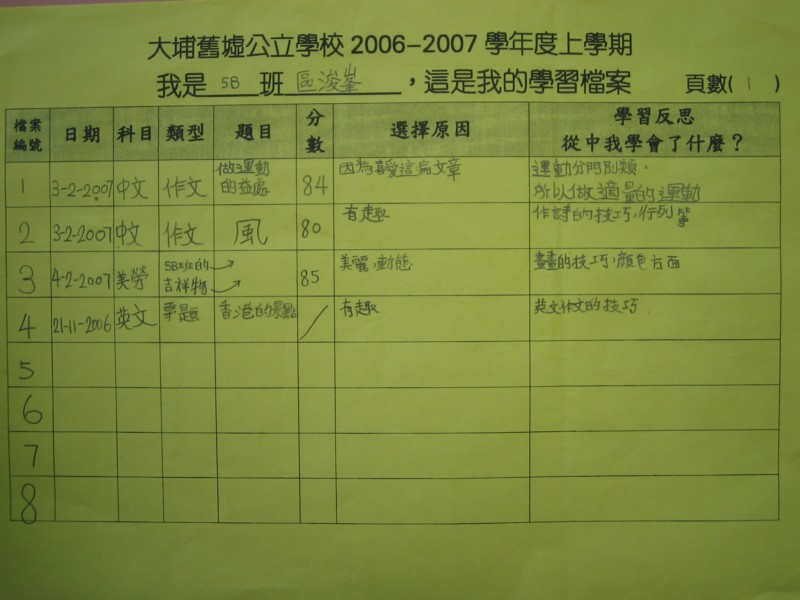 大埔舊墟公立學校 2006-2007 學年度上學期
我是 5B 班 區浚峯 ，這是我的學習檔案 頁數( 1 )
檔案編號 日期 科目 類型 題目 分數 選擇原因 學習反思 從中我學會了什麼？
1 3-2-2007 中文 作文 做運動的益處 84 因為喜愛這篇文章 運動分門別類，所以做適量的運動
2 3-2-2007 中文 作文 風 80 有趣 作詩的技巧，行列等
3 4-2-2007 美勞 5B班的吉祥物 85 美麗，動態 畫畫的技巧，顏色方面
4 21-11-2006 英文 專題 香港的景點 / 有趣 英文作文的技巧
5
6
7
8